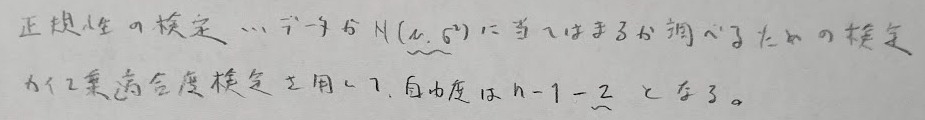 正規性の検定…データがN(μ,σ²)に当てはまるか調べるための検定
カイ2乗適合度検定を用いて、自由度はn-1-2となる。